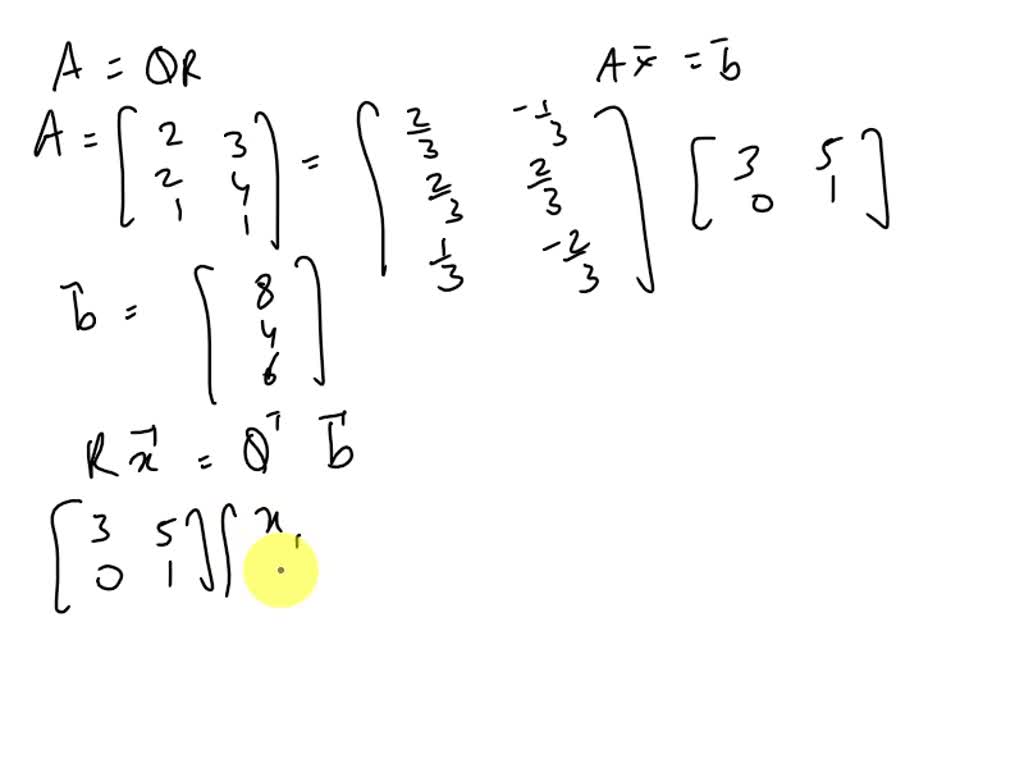 A = QR
A x̄ = b̄
A = [ 2 3 ; 2 4 ; 1 1 ] = [ 2/3 -1/3 ; 2/3 2/3 ; 1/3 -2/3 ] [ 3 5 ; 0 1 ]
b⃗ = [ 8 ; 4 ; 6 ]
R x⃗ = Qᵀ b⃗
[ 3 5 ; 0 1 ] [ x₁